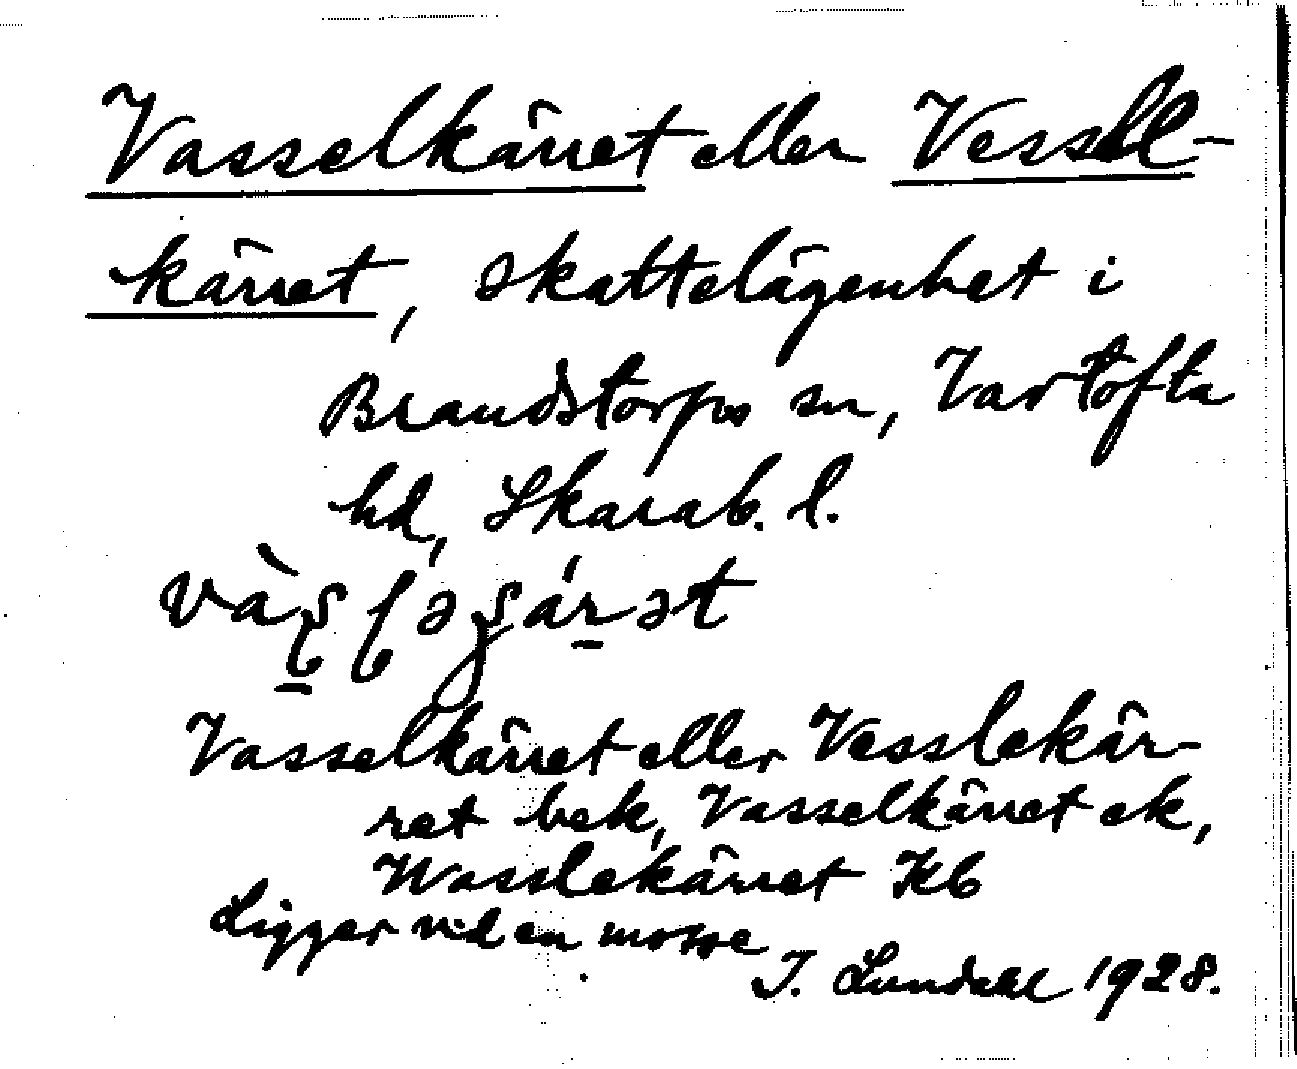 Vasselkärret eller Vessel-
kärret, skattelägenhet i
Brandstorps sn, Vartofta
hd, Skarab. l.
Vasselkärret eller Vesslekär-
ret bek, Vasselkärret ek,
Wasslekärret Kb
Ligger vid en mosse
I. Lundahl 1928.